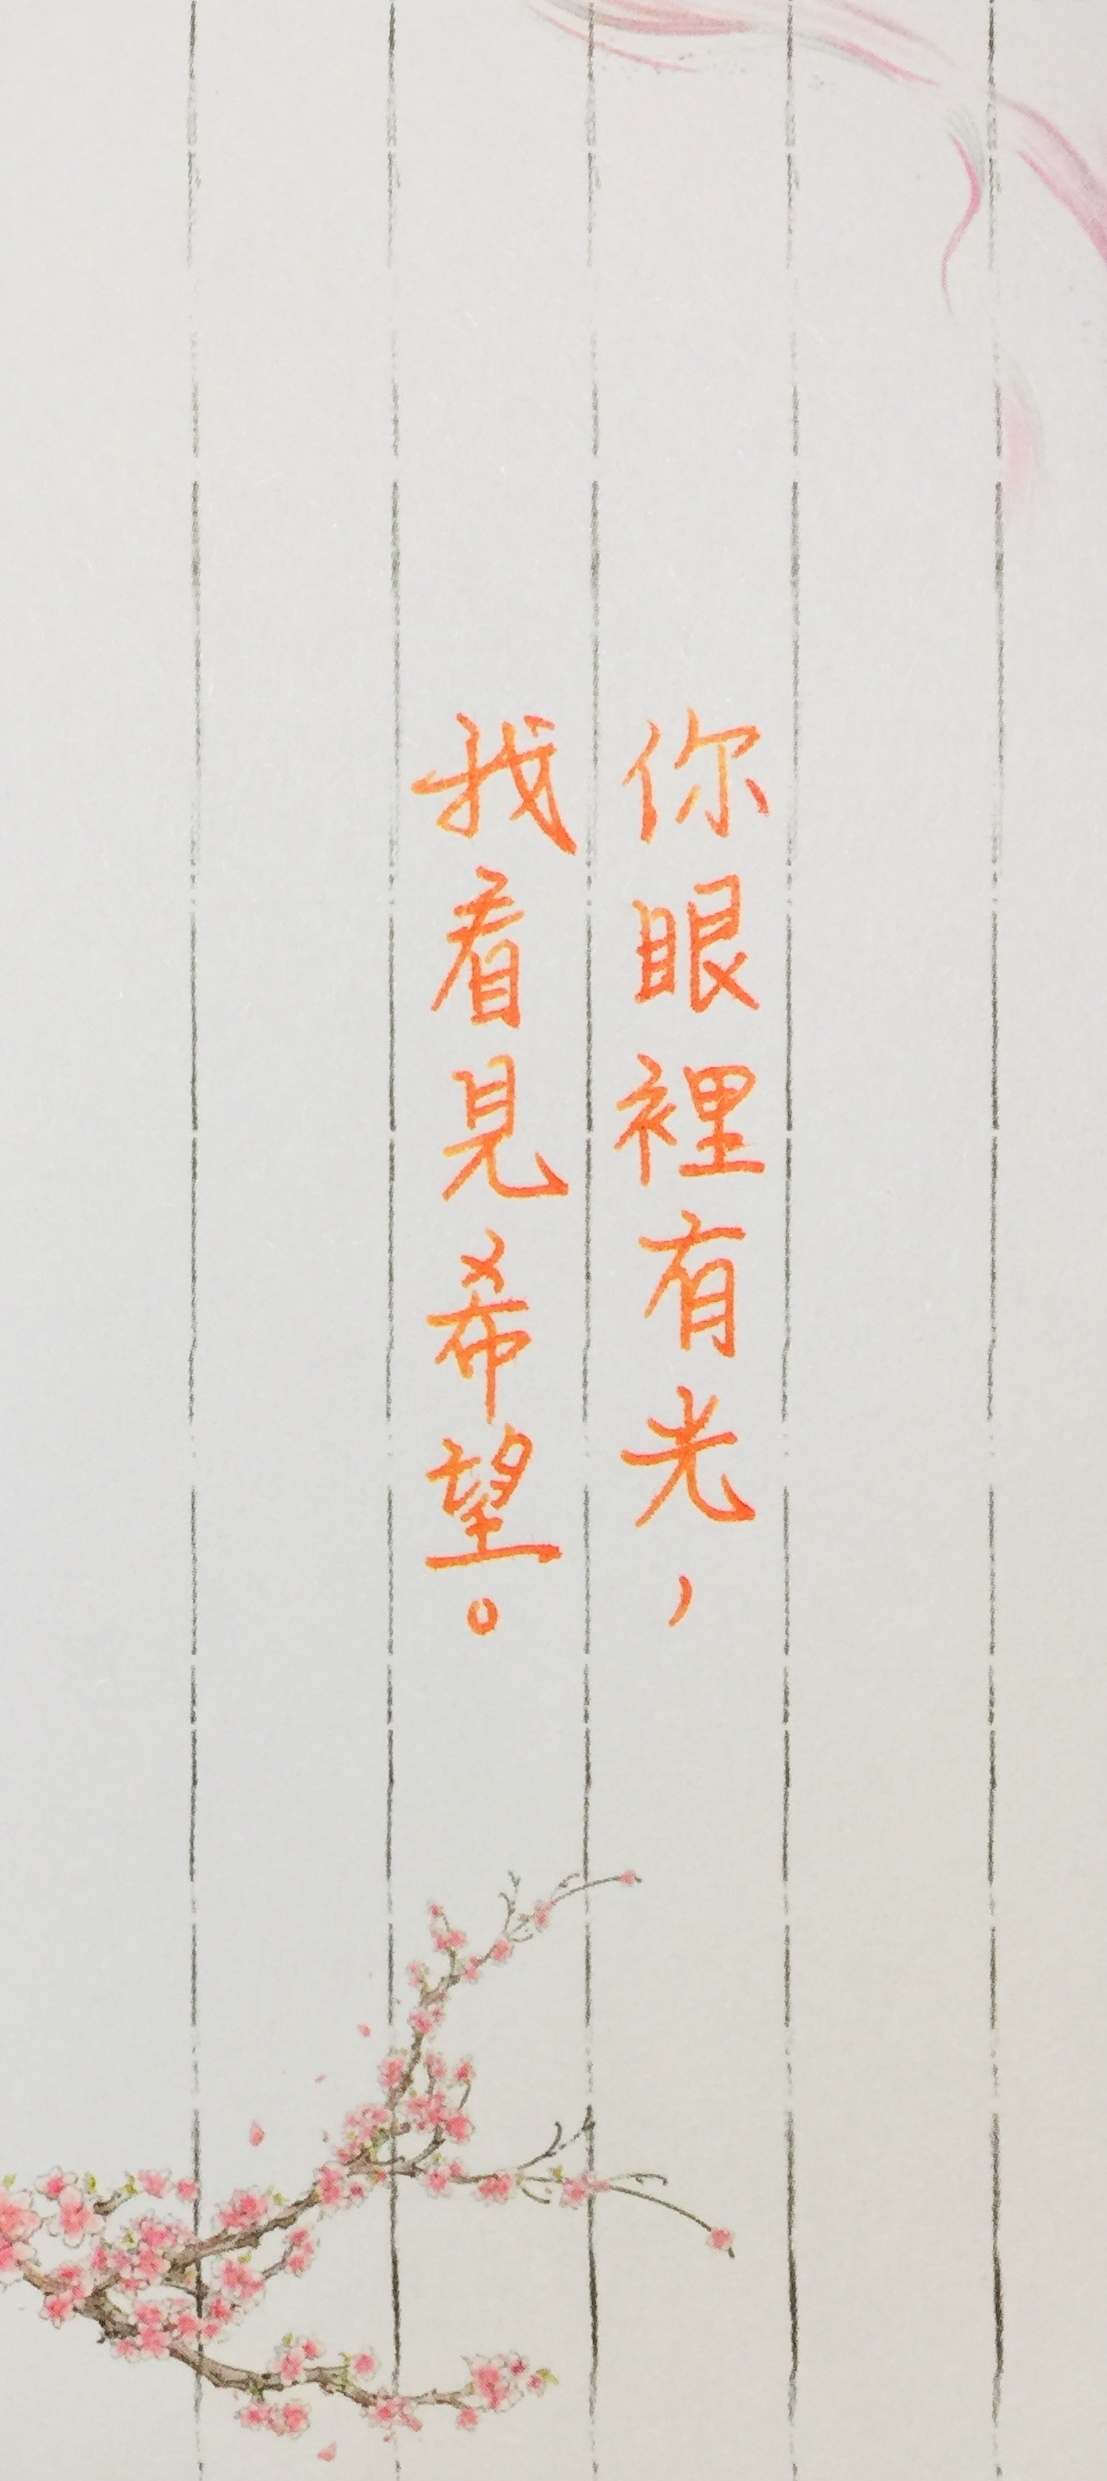 你眼裡有光，
我看見希望。